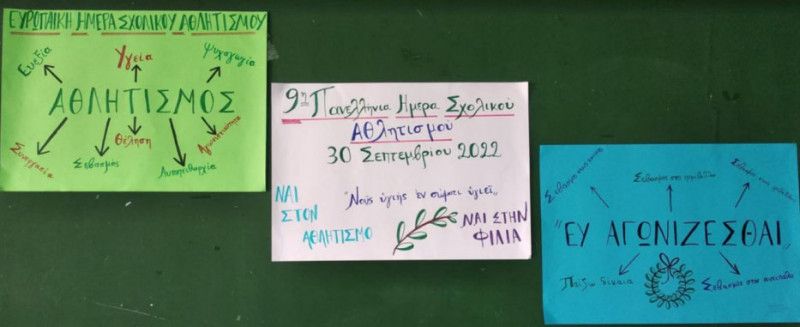 ΕΥΡΩΠΑΪΚΗ ΗΜΕΡΑ ΣΧΟΛΙΚΟΥ ΑΘΛΗΤΙΣΜΟΥ
Ευεξία
Υγεία
Ψυχαγωγία
ΑΘΛΗΤΙΣΜΟΣ
Συνεργασία
Σεβασμός
Θέληση
Αυτοπειθαρχία
9η Πανελλήνια Ημέρα Σχολικού
Αθλητισμού
30 Σεπτεμβρίου 2022
"Νοῦς ὑγιὴς ἐν σώματι ὑγιεῖ"
ΝΑΙ
ΣΤΟΝ
ΑΘΛΗΤΙΣΜΟ
ΝΑΙ ΣΤΗΝ
ΦΙΛΙΑ
Σεβασμός στο
"ΕΥ ΑΓΩΝΙΖΕΣΘΑΙ"
Παίζω δίκαια
Σεβασμός στον αντίπαλο